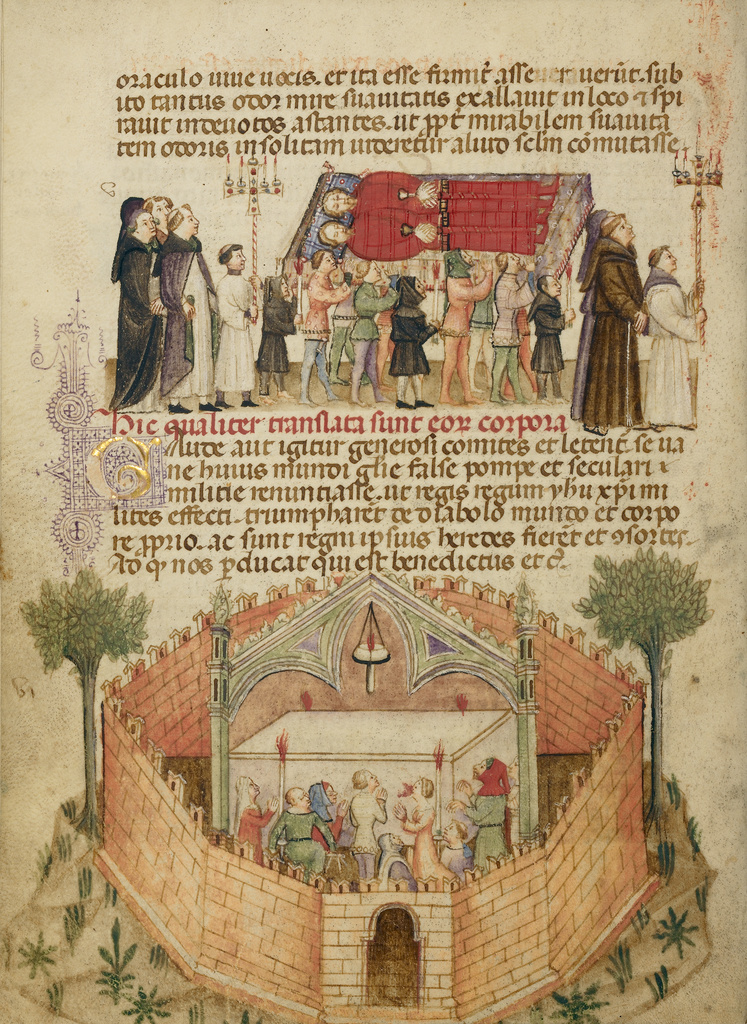 oraculo uiue uocis. et ita esse firmit̄ asse uerūt. sub
ito tantus odor mire suauitatis exallauit in loco ⁊ spi
rauit in deuotos astantes. ut ꝓpt̄ mirabilem suauita
tem odoris insolitam uideretur aliud scl̄m cōmutasse.
Hic qualiter translata sunt eoꝝ corpora
Gaude aut igitur generosi comites et letent̄ se ua
ne huius mundi gl̄ie false pompe et seculari
militie renuntiasse. ut regis regum yhu xp̄i mi
lites effecti. triumpharēt de diabolo mundo et corpo
re ꝓprio. ac sunt regni ipsius heredes fierēt et ꝯsortes.
Ad qͥ nos ꝑducat qui est benedictus et c̄.